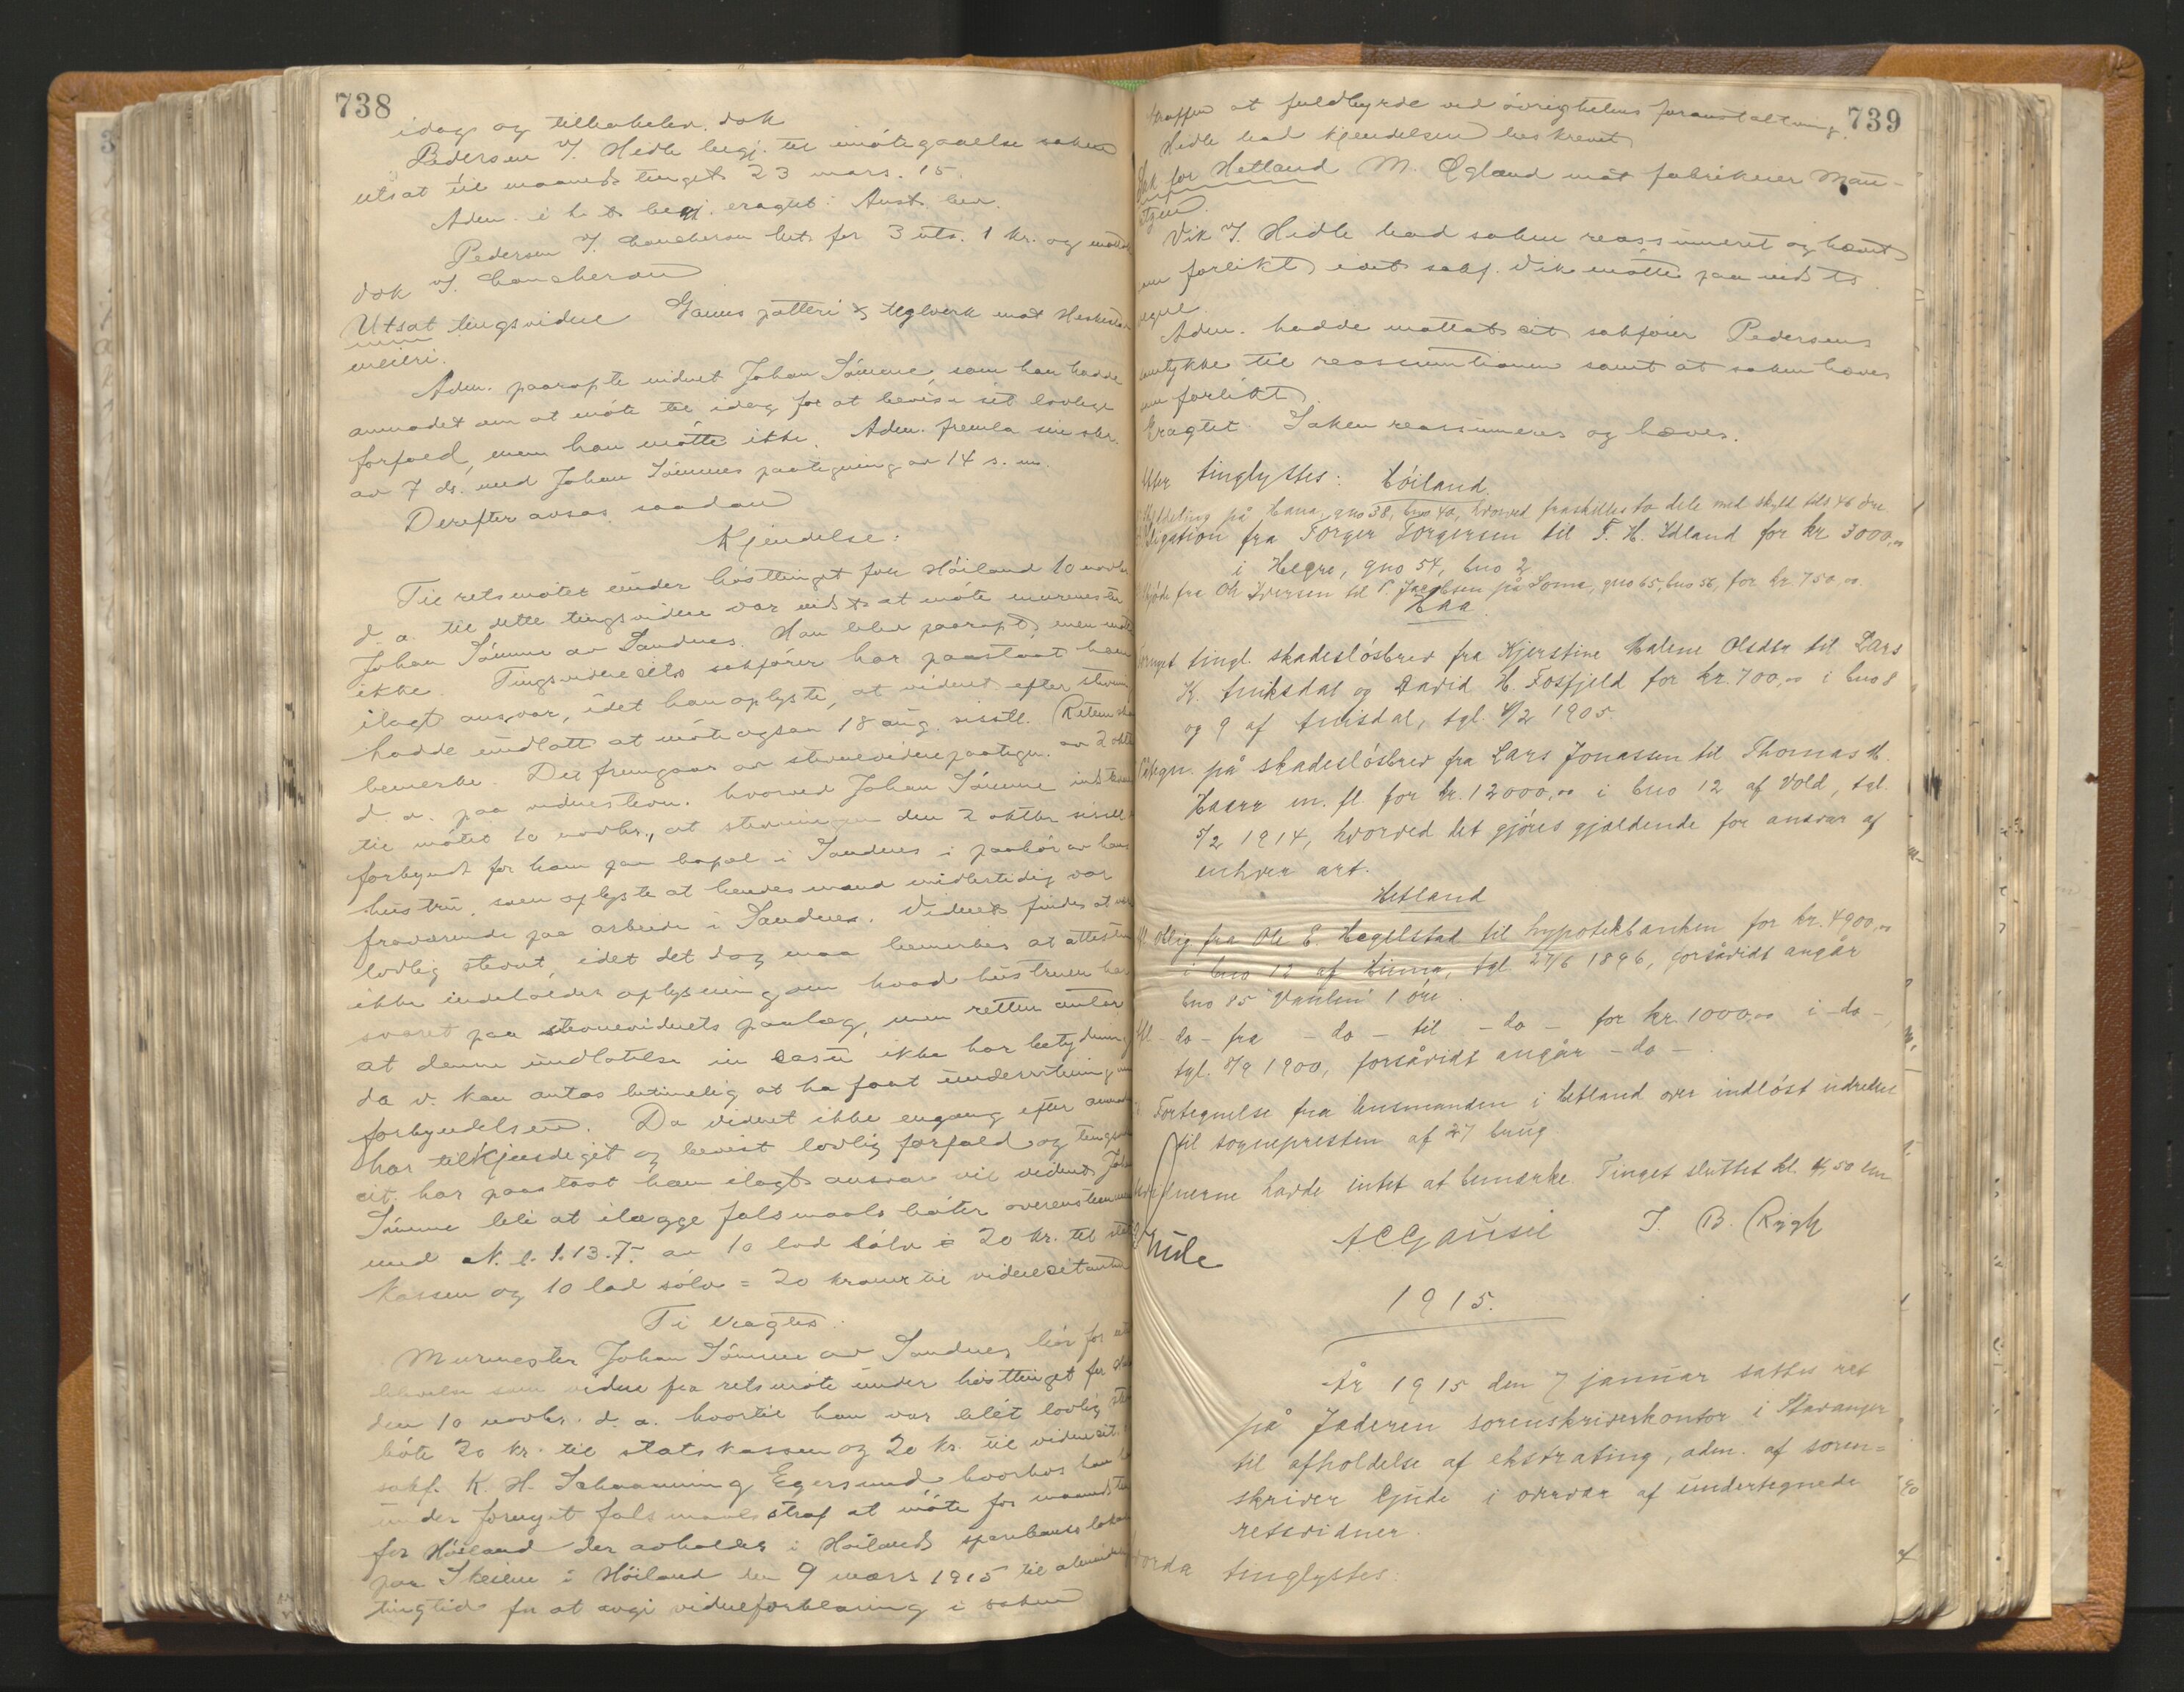 738
idag og tilbakelev. dok
Pedersen v. Hidle begj. til imøtegaaelse saken
utsat til maanedstinget 23 mars. 15.
Adm. i h. t. begj. eragtet: Anst. bev.
Pedersen v. Danchersen bet. for 3 uts. 1 kr. og mottok
dok v. Danchersen
Utsat tingsvidne Gannes potteri & teglverk mot
meieri.
Adm. paaropte vidnet Johan Sømme, som han hadde
anmodet om at møte til idag for at bevise sit lovlige
forfald, men han møtte ikke. Adm. fremla sin skr.
av 7 ds. med Johan Sømmes paategning av 14 s. m.
Derefter avsas saadan
Kjendelse:
Til retsmøtet under høsttinget for Høiland 10 novbr.
d. a. til dette tingsvidne var indst. at møte murmester
Johan Sømme av Sandnes. Han blev paaropt, men møtte
ikke. Tingsvidnecits sakfører har paastaat ham
ilagt ansvar, idet han oplyste, at vidnet efter stevn.
hadde undlatt at møte ogsaa 18 aug. sisstl. Retten skal
bemerke. Det fremgaar av stevnevidnepaategn. av 2 oktbr
d. a. paa vidnestevn. hvorved Johan Sømme indstevnes
til møtet 10 novbr., at stevningen den 2 oktbr sisstl.
forkyndt for ham paa bopæl i Sandnes i paahør av hans
hustru, som oplyste at hendes mand midlertidig var
fraværende paa arbeide i Sandnes. Vidnet findes at være
lovlig stevnt, idet det dog maa bemerkes at attesten
ikke indeholder oplysning om hvad hustruen har
svaret paa stevnevidnets paalæg, men retten antar
at denne undlatelse in casu ikke har betydning
da v. kan antas betimelig at ha faat underretning om
forkyndelsen. Da vidnet ikke engang efter anmodn.
har tilkjendegit og bevist lovlig forfald og tingsv.
cit. har paastaat ham ilagt ansvar vil vidnet Johan
Sømme bli at ilægge falsmaals bøter overensstemmende
med N. L. 1.13.7. av 10 lod sølv = 20 kr. til stats
kassen og 10 lod sølv = 20 kroner til vidnecitanten
Ti eragtes:
Murmester Johan Sømme av Sandnes bør for ute
blivelse som vidne fra retsmøte under høsttinget for Høiland
den 10 novbr. d. a. hvortil han var blit lovlig stevnt
bøte 20 kr. til statskassen og 20 kr. til vidnecit.
sakf. K. H. Schaanning Egersund, hvorhos han bør
under fornyet falsmaalsstraf at møte for maanedsting
for Høiland der avholdes i Høilands sparebanks lokale
paa Skeiene i Høiland den 9 mars 1915 til almindelig
tingtid for at avgi vidneforklaring i saken
739
Straffen at fuldbyrde ved øvrighetens foranstaltning.
Hidle bad kjendelsen beskrevet
Sak for Hetland M. Øgland mot fabrikeier Mau-
ritzen.
Vik v. Hidle bad saken reassumeret og hævet
som forlikt, idet sakf. Vik møtte paa
vegne
Adm. hadde mottat cit sakfører Pedersens
samtykke til reassumtionen samt at saken hæves
som forlikt.
Eragtet: Saken reassumeres og hæves.
Efter tinglystes: Høiland.
Skylddeling på Hana, gno 38, bno 40, hvorved fraskilles to dele med skyld tils 46 øre
Obligation fra Torger Torgersen til T. H. Idland for kr. 3000,00
i Hegre, gno 54, bno 2
Skjøde fra Ole Iversen til P. Jacobsen på Soma, gno 65, bno 56, for kr. 750,00.
Haa
Fornyet tingl. skadesløsbrev fra Kjerstine Malene Olsdtr til Lars
K. Auksdal og David H. Fosfjeld for kr. 700,00 i bno 8
og 9 af Auisdal, tgl. 4/2 1905.
Påtegn. på skadesløsbrev fra Lars Jonassen til Thomas H.
Haarr m. fl. for kr. 12000,00 i bno 12 af Vold, tgl.
5/2 1914, hvorved det gjøres gjældende for ansvar af
enhver art.
Hetland
Afl. Oblig fra Ole E. Hegelstad til hypotekbanken for kr. 4900,00
i bno 12 af Hinna, tgl 27/6 1896, forsåvidt angår
bno 85 "Vaulen" 1 øre.
Afl - do - fra - do - til - do - for kr. 1000,00 i - do -,
tgl. 8/9 1900, forsåvidt angår - do -.
Fortegnelse fra lensmanden i Hetland over indløst udredsel
til sognepresten af 27 brug.
Retsvidnerne havde intet at bemærke. Tinget sluttet kl. 4,50 em
Gjude A C Gausel T. B. Rygh
1915.
År 1915 den 7 januar sattes ret
på Jæderen sorenskriverkontor i Stavanger
til afholdelse af ekstrating, adm. af soren=
skriver Gjude i overvær af undertegnede
retsvidner.
Hvorda tinglystes: